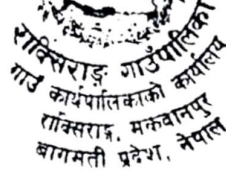 राक्सिराङ गाउँपालिका
गाउँ कार्यपालिकाको कार्यालय
राक्सिराङ्ग, मकवानपुर
बागमती प्रदेश, नेपाल